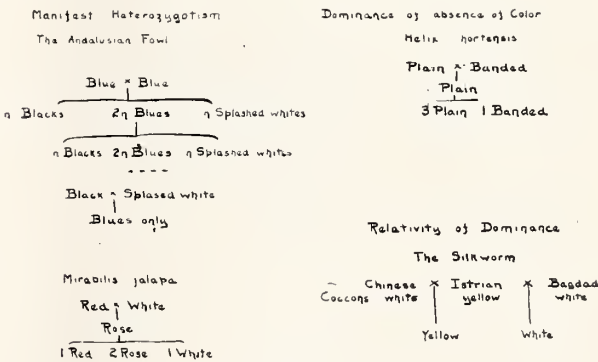 Manifest Heterozygotism
The Andalusian Fowl
Blue × Blue
n Blacks 2n Blues n Splashed whites
n Blacks 2n Blues n Splashed whites
Black × Splased white
Blues only
Mirabilis jalapa
Red × White
Rose
1 Red 2 Rose 1 White
Dominance of absence of Color
Helix hortensis
Plain × Banded
Plain
3 Plain 1 Banded
Relativity of Dominance
The Silkworm
Chinese × Istrian × Bagdad
Coccons white yellow white
Yellow White